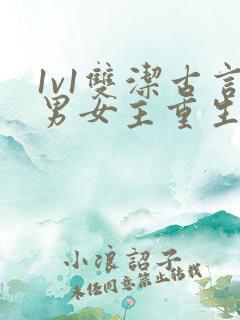 1v1雙潔古言
男女主重生
小浪詔子
未任同意禁止轉載